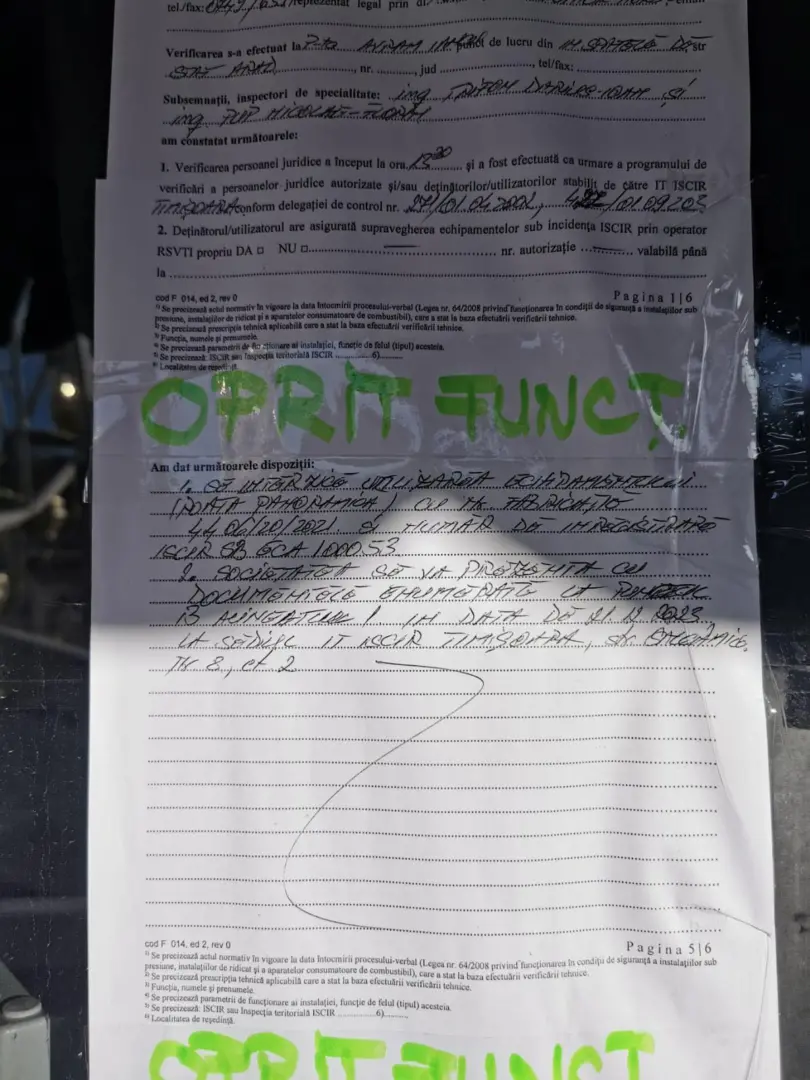 tel./fax: reprezentat legal prin
Verificarea s-a efectuat la P-ta AVRAM IANCU punct de lucru din IN SPATELE DE str
STAT ARAD, nr. ........, jud ........................, tel/fax: ........................
Subsemnații, inspectori de specialitate: ing și
ing POP NICOLAE-FLORIN
am constatat următoarele:
1. Verificarea persoanei juridice a început la ora 13³⁰ și a fost efectuată ca urmare a programului de
verificări a persoanelor juridice autorizate și/sau deținătorilor/utilizatorilor stabilit de către IT ISCIR
TIMIȘOARA conform delegației de control nr.
2. Deținătorul/utilizatorul are asigurată supravegherea echipamentelor sub incidența ISCIR prin operator
RSVTI propriu DA □ NU □ nr. autorizație valabilă până
la
cod F 014, ed 2, rev 0 Pagina 1|6
¹⁾ Se precizează actul normativ în vigoare la data întocmirii procesului-verbal (Legea nr. 64/2008 privind funcționarea în condiții de siguranță a instalațiilor sub
presiune, instalațiilor de ridicat și a aparatelor consumatoare de combustibil), care a stat la baza efectuării verificării tehnice.
²⁾ Se precizează prescripția tehnică aplicabilă care a stat la baza efectuării verificării tehnice.
³⁾ Funcția, numele și prenumele.
⁴⁾ Se precizează parametrii de funcționare ai instalației, funcție de felul (tipul) acesteia.
⁵⁾ Se precizează: ISCIR sau Inspecția teritorială ISCIR ............6)........
⁶⁾ Localitatea de reședință.
OPRIT FUNCȚ.
Am dat următoarele dispoziții:
1. SE INTERZICE UTILIZAREA ECHIPAMENTULUI
(ROATA PANORAMICA) CU NR. FABRICAȚIE
44.06/20/2021 ȘI NUMAR DE INREGISTRARE
ISCIR SB GCA 1000.53
2. SOCIETATEA SE VA PREZENTA CU
DOCUMENTELE ENUMERATE LA PUNCTUL
B ALINEATUL 1 IN DATA DE 21.12.2023
LA SEDIUL IT ISCIR TIMIȘOARA, str.
nr 8, et 2
cod F 014, ed 2, rev 0 Pagina 5|6
¹⁾ Se precizează actul normativ în vigoare la data întocmirii procesului-verbal (Legea nr. 64/2008 privind funcționarea în condiții de siguranță a instalațiilor sub
presiune, instalațiilor de ridicat și a aparatelor consumatoare de combustibil), care a stat la baza efectuării verificării tehnice.
²⁾ Se precizează prescripția tehnică aplicabilă care a stat la baza efectuării verificării tehnice.
³⁾ Funcția, numele și prenumele.
⁴⁾ Se precizează parametrii de funcționare ai instalației, funcție de felul (tipul) acesteia.
⁵⁾ Se precizează: ISCIR sau Inspecția teritorială ISCIR ............6)........
⁶⁾ Localitatea de reședință.
OPRIT FUNCȚ